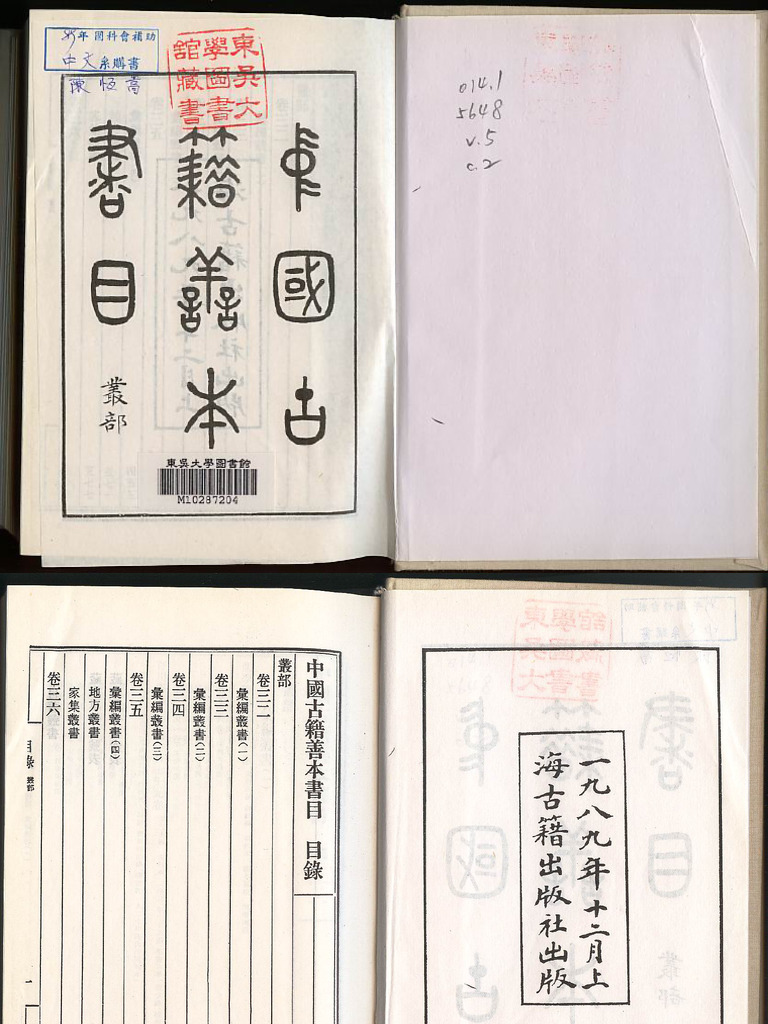 年 國科會補助
中文系購書
陳恆嵩
東吳大
學圖書
館藏書
中國古
籍善本
書目
叢部
東吳大學圖書館
M10287204
014.1
5648
v.5
c.2
中國古籍善本書目 目錄
叢部
卷三二
彙編叢書(一)
卷三三
彙編叢書(二)
卷三四
彙編叢書(三)
卷三五
彙編叢書(四)
地方叢書
家集叢書
卷三六
目錄 叢部
一
一九八九年十二月上
海古籍出版社出版